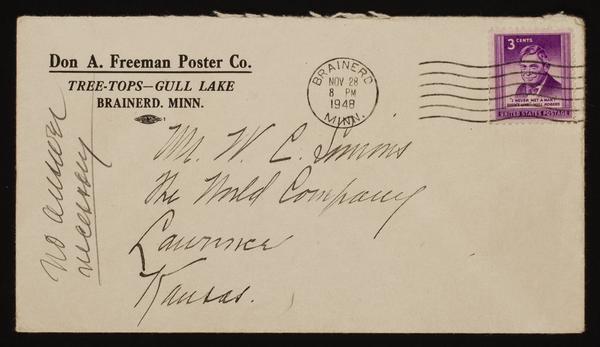 Don A. Freeman Poster Co.
TREE-TOPS—GULL LAKE
BRAINERD. MINN.
BRAINERD
NOV 28
8 PM
1948
MINN.
3 CENTS
"I NEVER MET A MAN I
DIDN'T LIKE" WILL ROGERS
UNITED STATES POSTAGE
No answer
necessary
Mr. W. C. Simons
The World Company
Lawrence
Kansas.